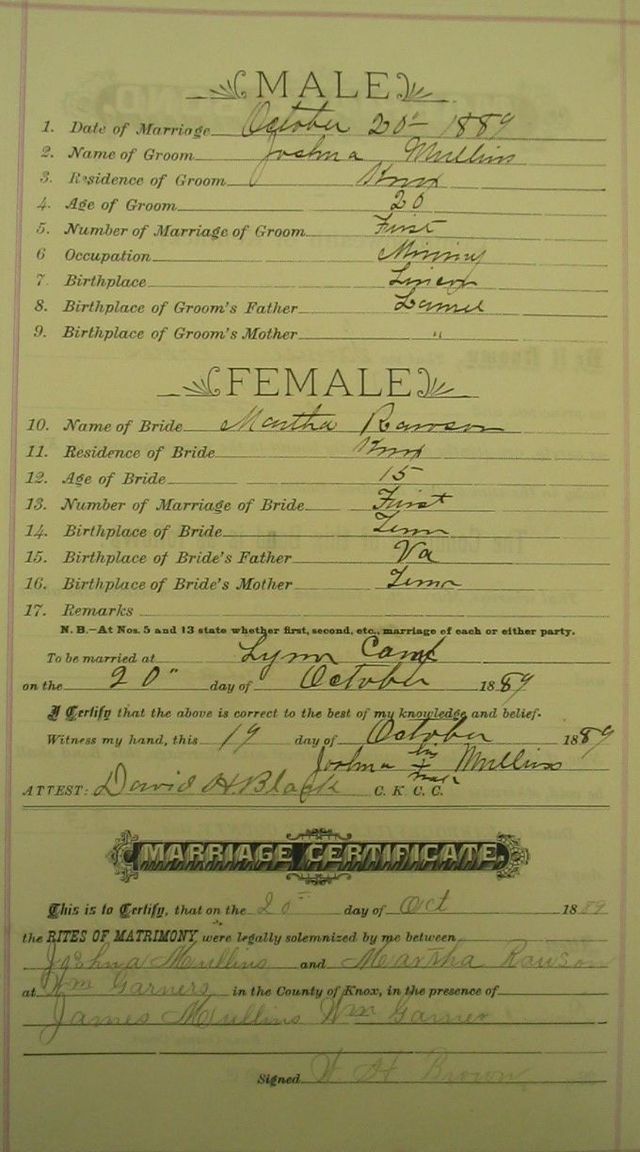 MALE
1. Date of Marriage October 20" 1889
2. Name of Groom Joshua Mullins
3. Residence of Groom Knox
4. Age of Groom 20
5. Number of Marriage of Groom First
6 Occupation Mining
7. Birthplace
8. Birthplace of Groom's Father Laurel
9. Birthplace of Groom's Mother "
FEMALE
10. Name of Bride Martha Rawson
11. Residence of Bride Knox
12. Age of Bride 15
13. Number of Marriage of Bride First
14. Birthplace of Bride Tenn
15. Birthplace of Bride's Father Va
16. Birthplace of Bride's Mother Tenn
17. Remarks
N. B.—At Nos. 5 and 13 state whether first, second, etc., marriage of each or either party.
To be married at Lynn Camp
on the 20" day of October 1889
I Certify that the above is correct to the best of my knowledge and belief.
Witness my hand, this 19 day of October 1889
Joshua his x mark Mullins
ATTEST: David H Black C. K. C. C.
MARRIAGE CERTIFICATE.
This is to Certify, that on the 20 day of Oct 1889
the RITES OF MATRIMONY were legally solemnized by me between
Joshua Mullins and Martha Rawson
at Wm Garners in the County of Knox, in the presence of
James Mullins Wm Garner
Signed W. H. Brown